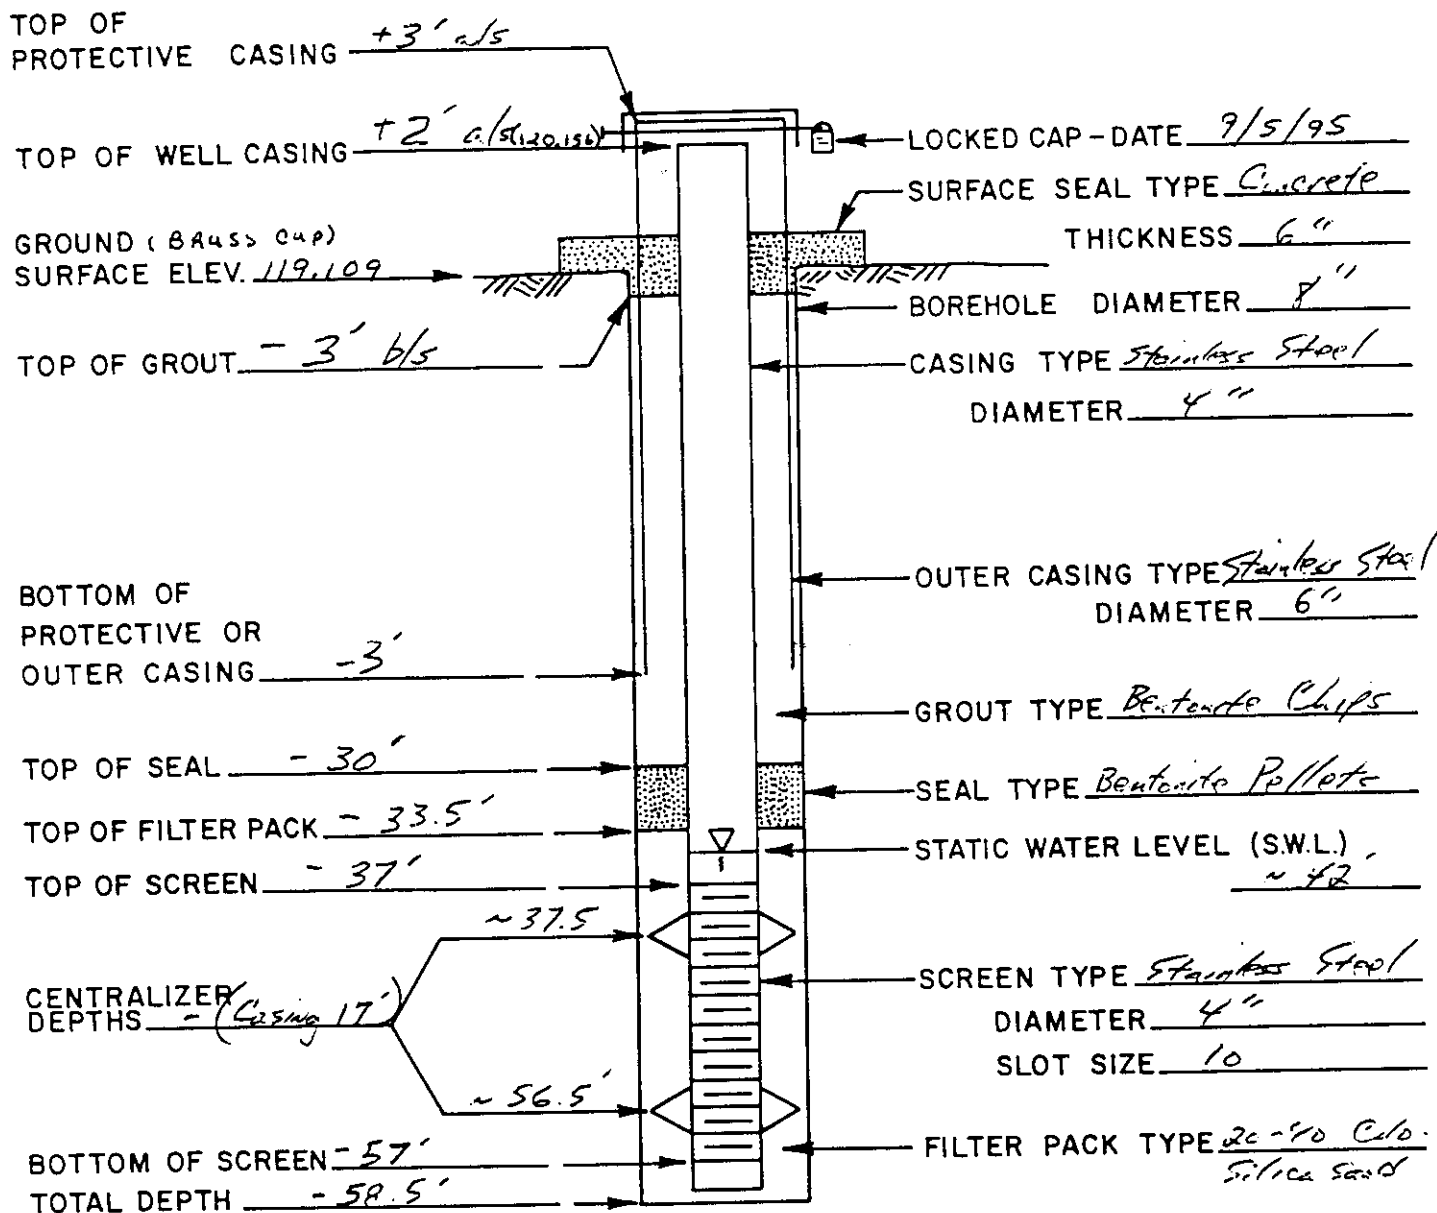 TOP OF
PROTECTIVE CASING +3' a/s
TOP OF WELL CASING +2' a/s (120.156)
GROUND (BRASS CAP)
SURFACE ELEV. 119.109
TOP OF GROUT - 3' b/s
BOTTOM OF
PROTECTIVE OR
OUTER CASING -3'
TOP OF SEAL - 30'
TOP OF FILTER PACK - 33.5'
TOP OF SCREEN - 37'
~ 37.5
CENTRALIZER
DEPTHS - (Casing 17')
~ 56.5'
BOTTOM OF SCREEN - 57'
TOTAL DEPTH - 58.5'
LOCKED CAP - DATE 9/5/95
SURFACE SEAL TYPE Concrete
THICKNESS 6"
BOREHOLE DIAMETER 8"
CASING TYPE Stainless Steel
DIAMETER 4"
OUTER CASING TYPE Stainless Steel
DIAMETER 6"
GROUT TYPE Bentonite Chips
SEAL TYPE Bentonite Pellets
STATIC WATER LEVEL (S.W.L.)
~ 42'
SCREEN TYPE Stainless Steel
DIAMETER 4"
SLOT SIZE 10
FILTER PACK TYPE 20-40 Colo.
Silica sand